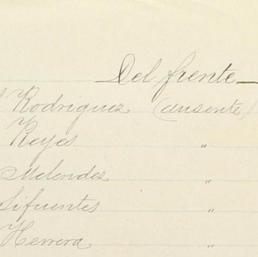 Del frente
Rodriguez (ausente)
Reyes "
Melendes "
Sifuentes "
Herrera "